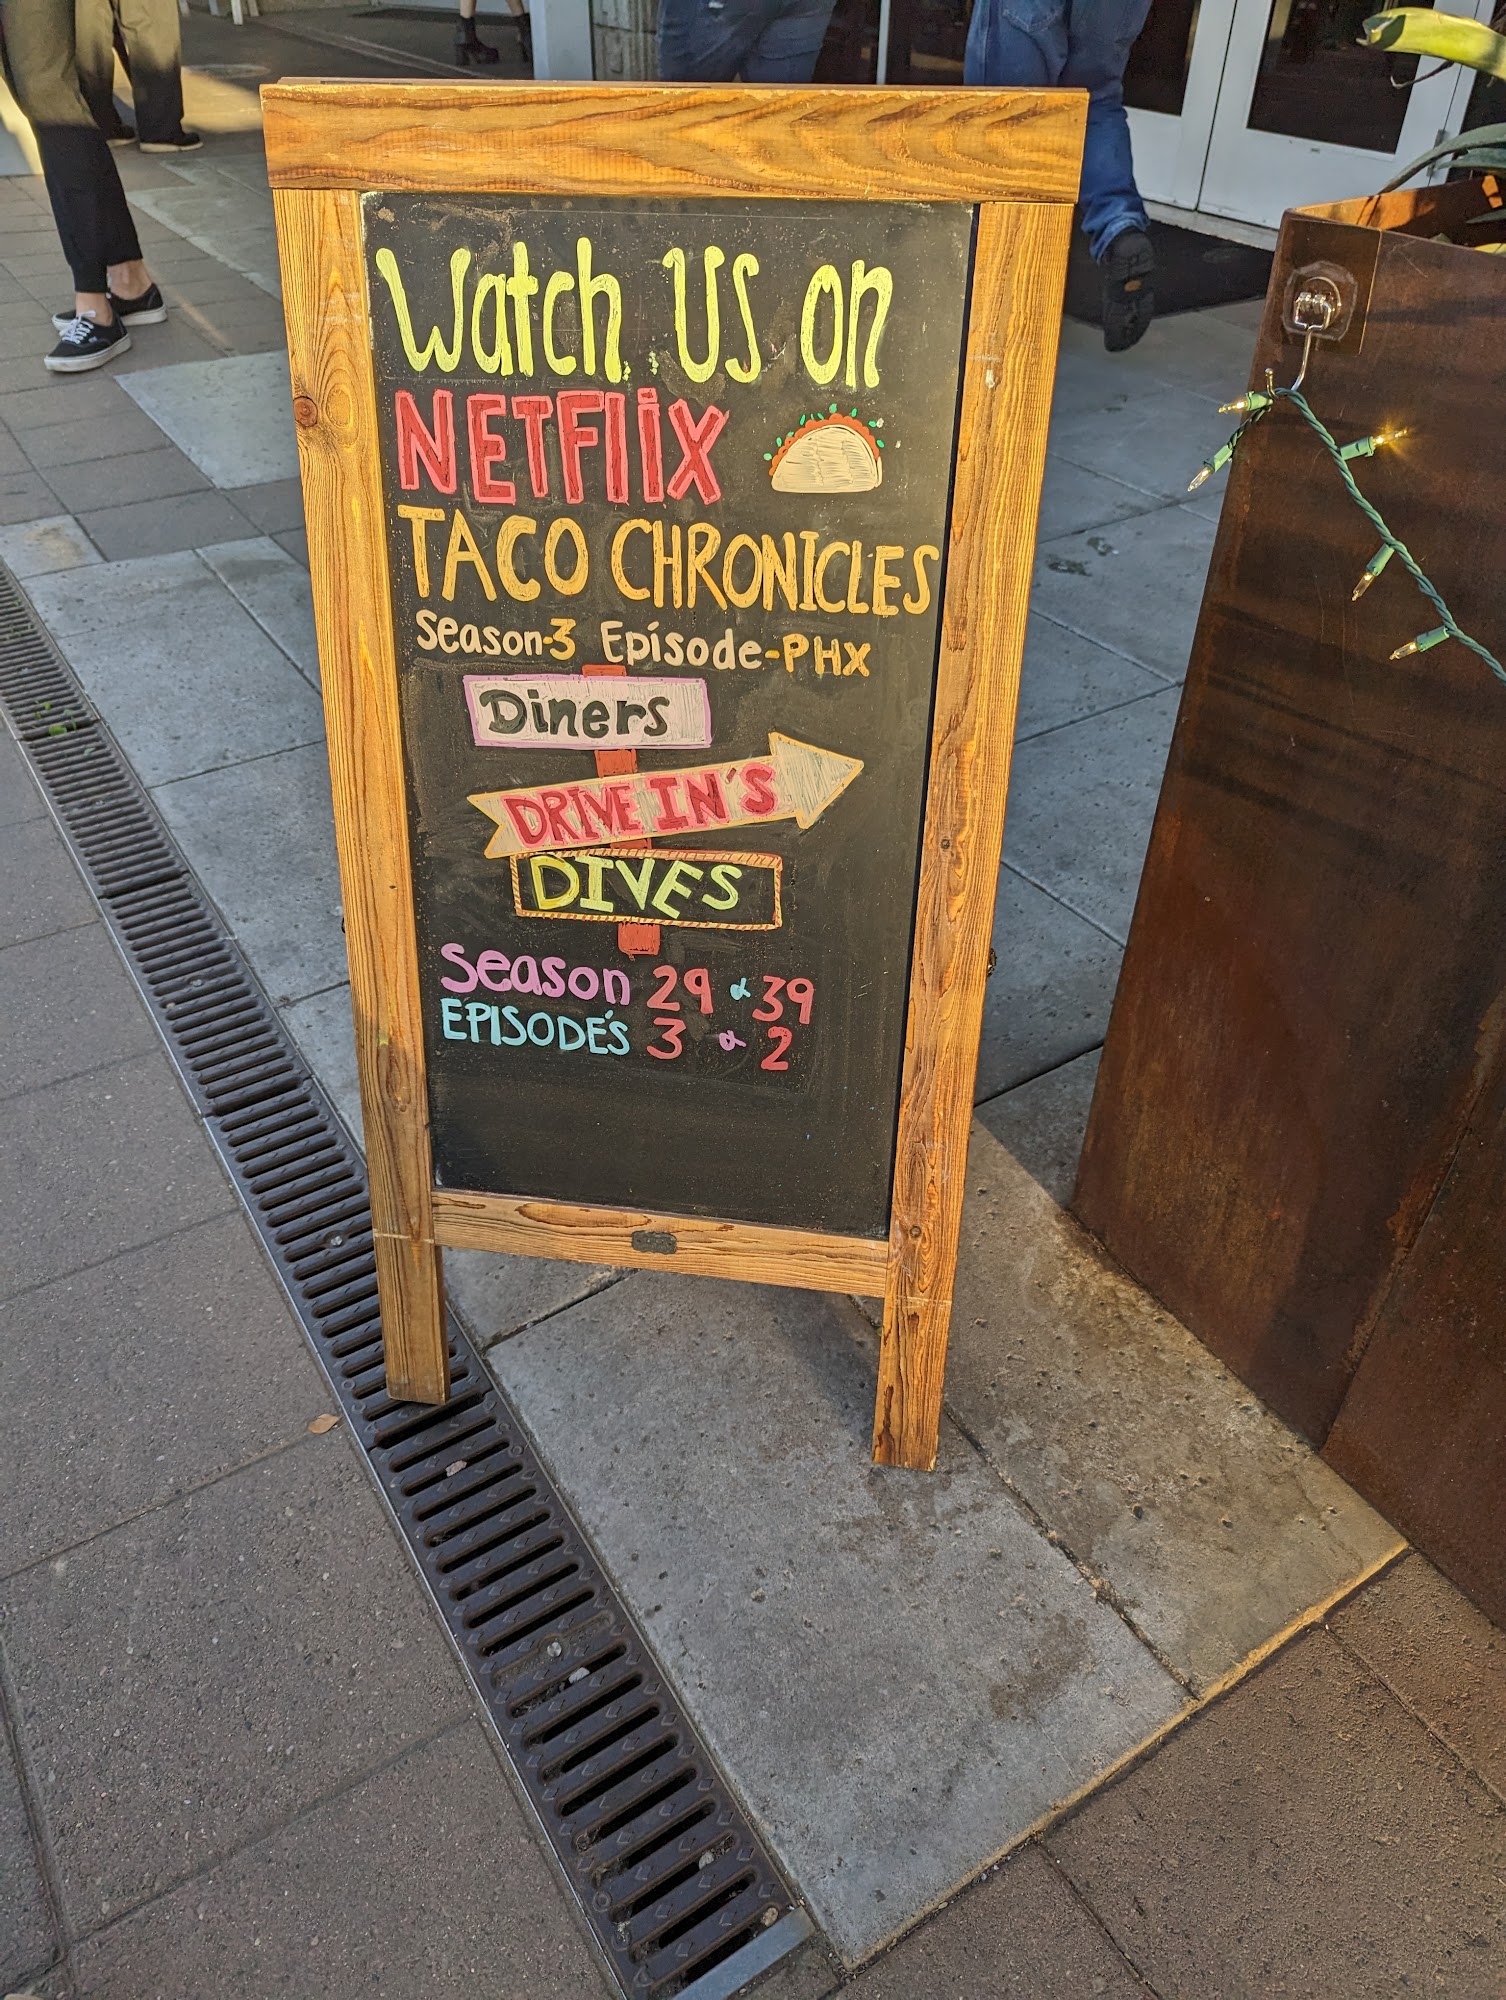 Watch US on
NETFliX
TACO CHRONICLES
Season-3 Episode-PHX
Diners
DRIVE IN'S
DIVES
Season 29 & 39
EPISODE'S 3 & 2